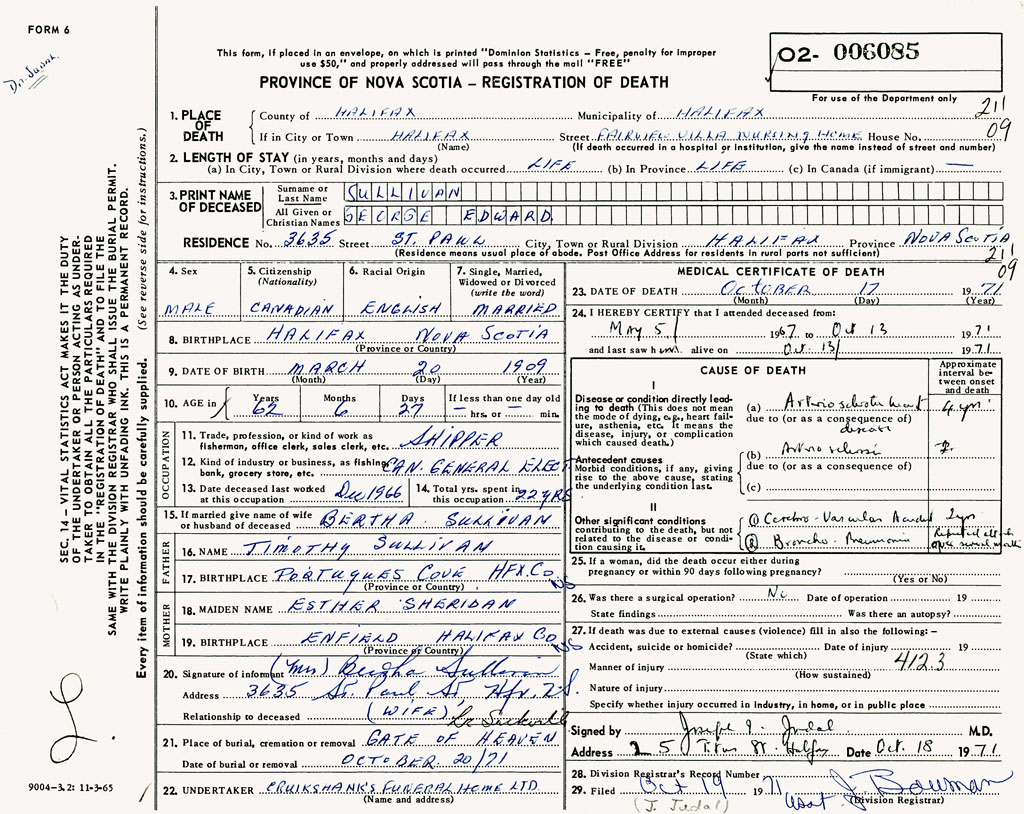 FORM 6
Dr. Judal.
This form, if placed in an envelope, on which is printed "Dominion Statistics – Free, penalty for improper
use $50," and properly addressed will pass through the mail "FREE"
PROVINCE OF NOVA SCOTIA – REGISTRATION OF DEATH
02- 006085
For use of the Department only
211
09
1. PLACE OF DEATH
County of HALIFAX Municipality of HALIFAX
If in City or Town HALIFAX Street FAIRVIEW VILLA NURSING HOME House No.
(Name) (If death occurred in a hospital or institution, give the name instead of street and number)
2. LENGTH OF STAY (in years, months and days)
(a) In City, Town or Rural Division where death occurred LIFE (b) In Province LIFE (c) In Canada (if immigrant) —
3. PRINT NAME OF DECEASED
Surname or Last Name SULLIVAN
All Given or Christian Names GEORGE EDWARD
RESIDENCE No. 3635 Street ST. PAUL City, Town or Rural Division HALIFAX Province NOVA SCOTIA
(Residence means usual place of abode. Post Office Address for residents in rural parts not sufficient)
211
09
4. Sex MALE
5. Citizenship (Nationality) CANADIAN
6. Racial Origin ENGLISH
7. Single, Married, Widowed or Divorced (write the word) MARRIED
8. BIRTHPLACE HALIFAX NOVA SCOTIA
(Province or Country)
9. DATE OF BIRTH MARCH 20 1909
(Month) (Day) (Year)
10. AGE in Years 62 Months 6 Days 27 If less than one day old – hrs. or – min.
OCCUPATION
11. Trade, profession, or kind of work as fisherman, office clerk, sales clerk, etc. SHIPPER
12. Kind of industry or business, as fishing, bank, grocery store, etc. CAN. GENERAL ELECT
13. Date deceased last worked at this occupation Dec 1966
14. Total yrs. spent in this occupation 22 YRS
15. If married give name of wife or husband of deceased BERTHA SULLIVAN
FATHER
16. NAME TIMOTHY SULLIVAN
17. BIRTHPLACE PORTUGUES COVE HFX. CO. NS
(Province or Country)
MOTHER
18. MAIDEN NAME ESTHER SHERIDAN
19. BIRTHPLACE ENFIELD HALIFAX CO. NS
(Province or Country)
20. Signature of informant (Mrs) Bertha Sullivan
Address 3635 St. Paul St. Hfx. N.S.
Relationship to deceased (WIFE)
21. Place of burial, cremation or removal GATE OF HEAVEN
Date of burial or removal OCTOBER 20/71
22. UNDERTAKER CRUIKSHANK'S FUNERAL HOME LTD.
(Name and address)
MEDICAL CERTIFICATE OF DEATH
23. DATE OF DEATH OCTOBER 17 1971
(Month) (Day) (Year)
24. I HEREBY CERTIFY that I attended deceased from:
May 5/ 1967 to Oct 13 1971
and last saw him alive on Oct. 13/ 1971
CAUSE OF DEATH
Approximate interval between onset and death
I
Disease or condition directly leading to death (This does not mean the mode of dying, e.g., heart failure, asthenia, etc. It means the disease, injury, or complication which caused death.)
(a) heart 4 yrs
due to (or as a consequence of)
disease
Antecedent causes
Morbid conditions, if any, giving rise to the above cause, stating the underlying condition last.
(b) ?
due to (or as a consequence of)
(c)
II
Other significant conditions contributing to the death, but not related to the disease or condition causing it.
(1) Cerebro-Vascular Accident 2 yrs
(2) Broncho-Pneumonia Repeated attacks over several months
25. If a woman, did the death occur either during pregnancy or within 90 days following pregnancy?
(Yes or No)
26. Was there a surgical operation? No Date of operation 19
State findings Was there an autopsy?
27. If death was due to external causes (violence) fill in also the following:–
Accident, suicide or homicide? Date of injury 19
(State which)
412.3
Manner of injury
(How sustained)
Nature of injury
Specify whether injury occurred in industry, in home, or in public place
Signed by Joseph Judal M.D.
Address 25 Titus St. Halifax Date Oct. 18 1971
28. Division Registrar's Record Number
29. Filed Oct 19 1971 J. Bowman
(Division Registrar)
(J. Judal)
SEC. 14 – VITAL STATISTICS ACT MAKES IT THE DUTY
OF THE UNDERTAKER OR PERSON ACTING AS UNDER-
TAKER TO OBTAIN ALL THE PARTICULARS REQUIRED
IN THE "REGISTRATION OF DEATH" AND TO FILE THE
SAME WITH THE DIVISION REGISTRAR WHO SHALL ISSUE THE BURIAL PERMIT.
WRITE PLAINLY WITH UNFADING INK. THIS IS A PERMANENT RECORD.
Every item of information should be carefully supplied. (See reverse side for instructions.)
9004-3.2: 11-3-65